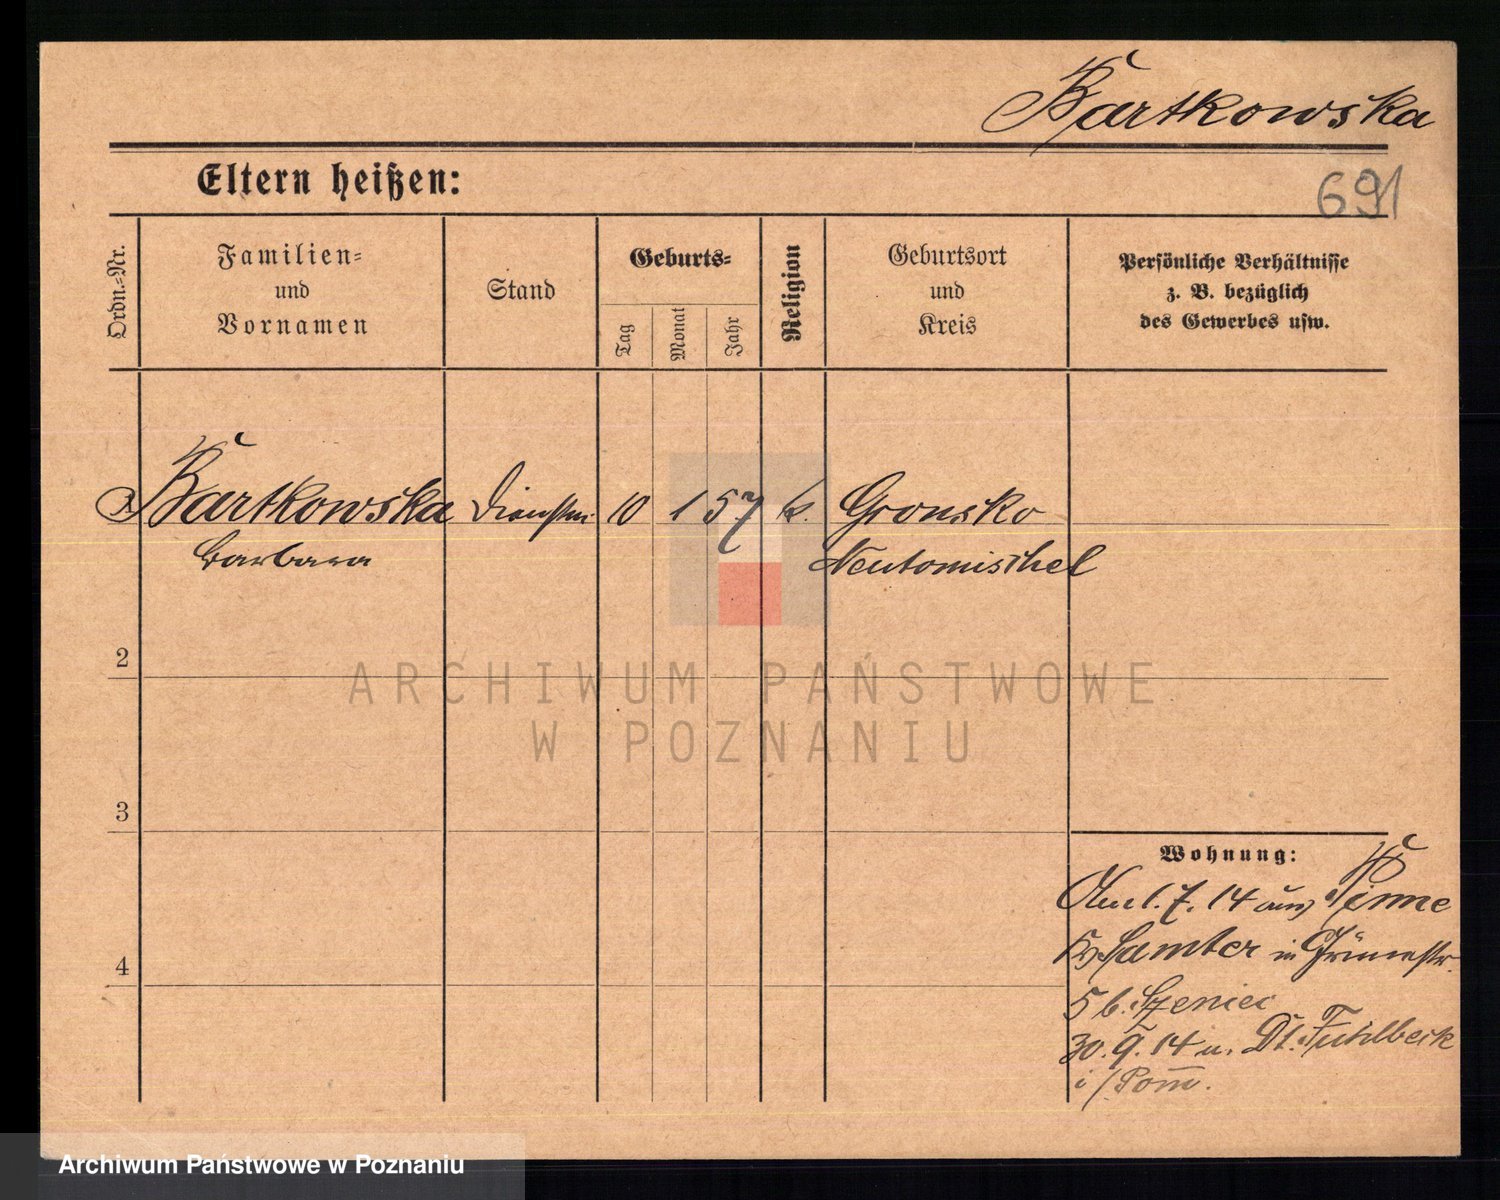 Bartkowska
Eltern heißen:
691
Ordn.-Nr.
Familien-
und
Vornamen
Stand
Geburts-
Tag
Monat
Jahr
Religion
Geburtsort
und
Kreis
Persönliche Verhältnisse
z. B. bezüglich
des Gewerbes usw.
Bartkowska 10 1 57 k. Gronsko
Barbara Neutomischel
2
ARCHIWUM PAŃSTWOWE
W POZNANIU
3
Wohnung:
Am 1.7.14 aus Pinne
Samter in
4
5 b. Szeniec
30.9.14 n. Dt. Fuhlbeck
i/Pom.
Archiwum Państwowe w Poznaniu